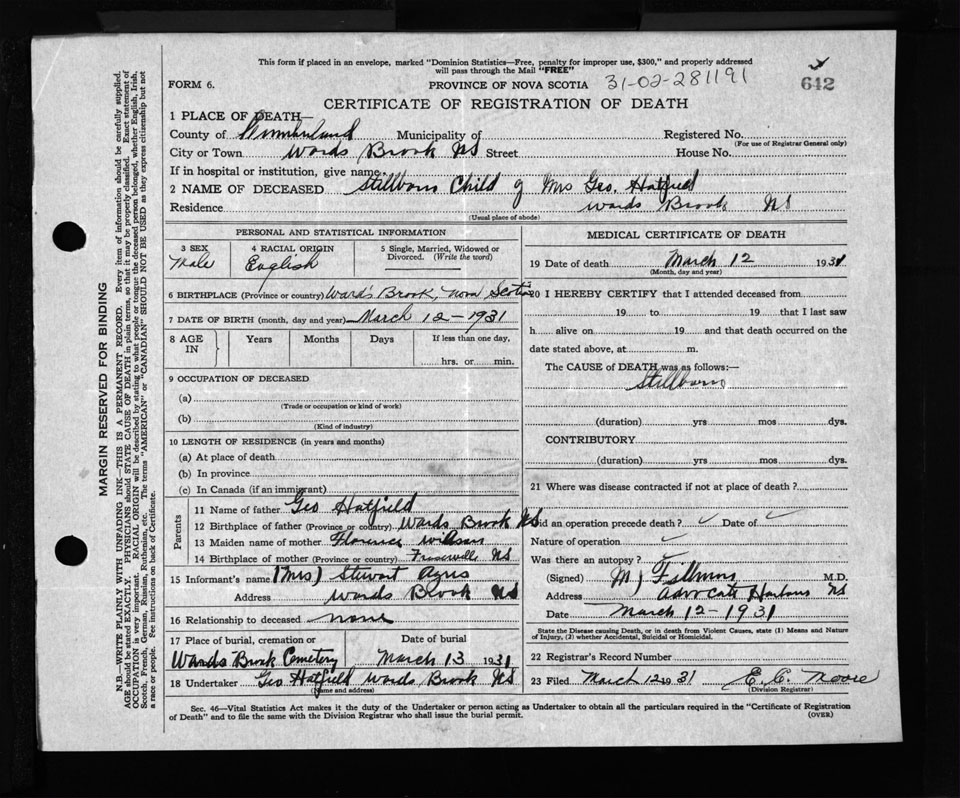 This form if placed in an envelope, marked "Dominion Statistics—Free, penalty for improper use, $300," and properly addressed
will pass through the Mail "FREE"
FORM 6. PROVINCE OF NOVA SCOTIA 31-02-281191 642
CERTIFICATE OF REGISTRATION OF DEATH
1 PLACE OF DEATH—
County of Cumberland Municipality of Registered No.
(For use of Registrar General only)
City or Town Wards Brook NS Street House No.
If in hospital or institution, give name
2 NAME OF DECEASED Stillborn Child of Mrs Geo. Hatfield
Residence Wards Brook NS
(Usual place of abode)
PERSONAL AND STATISTICAL INFORMATION
3 SEX 4 RACIAL ORIGIN 5 Single, Married, Widowed or
Divorced. (Write the word)
Male English
6 BIRTHPLACE (Province or country) Ward's Brook, Nova Scotia
7 DATE OF BIRTH (month, day and year) March 12-1931
8 AGE IN Years Months Days If less than one day,
hrs. or min.
9 OCCUPATION OF DECEASED
(a)
(Trade or occupation or kind of work)
(b)
(Kind of industry)
10 LENGTH OF RESIDENCE (in years and months)
(a) At place of death
(b) In province
(c) In Canada (if an immigrant)
Parents
11 Name of father Geo Hatfield
12 Birthplace of father (Province or country) Wards Brook NS
13 Maiden name of mother Florence Wilson
14 Birthplace of mother (Province or country) Fraserville NS
15 Informant's name (Mrs) Stewart
Address Wards Brook NS
16 Relationship to deceased none
17 Place of burial, cremation or Date of burial
Wards Brook Cemetery March 13 1931
18 Undertaker Geo Hatfield Wards Brook NS
(Name and address)
MEDICAL CERTIFICATE OF DEATH
19 Date of death March 12 1931
(Month, day and year)
20 I HEREBY CERTIFY that I attended deceased from
19 to 19 that I last saw
h alive on 19 and that death occurred on the
date stated above, at m.
The CAUSE of DEATH was as follows:—
Stillborn
(duration) yrs mos dys.
CONTRIBUTORY
(duration) yrs mos dys.
21 Where was disease contracted if not at place of death?
Did an operation precede death? ✓ Date of ✓
Nature of operation ✓
Was there an autopsy? ✓
(Signed) M J Fillmore M.D.
Address Advocate Harbour NS
Date March 12-1931
State the Disease causing Death, or in death from Violent Causes, state (1) Means and Nature
of Injury, (2) whether Accidental, Suicidal or Homicidal.
22 Registrar's Record Number
23 Filed March 12 1931 E. C. Moore
(Division Registrar)
Sec. 46—Vital Statistics Act makes it the duty of the Undertaker or person acting as Undertaker to obtain all the particulars required in the "Certificate of Registration
of Death" and to file the same with the Division Registrar who shall issue the burial permit.
(OVER)
MARGIN RESERVED FOR BINDING
N.B.—WRITE PLAINLY WITH UNFADING INK—THIS IS A PERMANENT RECORD. Every item of information should be carefully supplied.
AGE should be stated EXACTLY. PHYSICIANS should STATE CAUSE OF DEATH in plain terms, so that it may be properly classified. Exact statement of
OCCUPATION is very important. RACIAL ORIGIN will be described by stating to what people or tongue the deceased person belonged, whether English, Irish,
Scotch, French, German, Russian, Ruthenian, etc. The terms "AMERICAN" or "CANADIAN" SHOULD NOT BE USED as they express citizenship but not
a race or people. See instructions on back of Certificate.